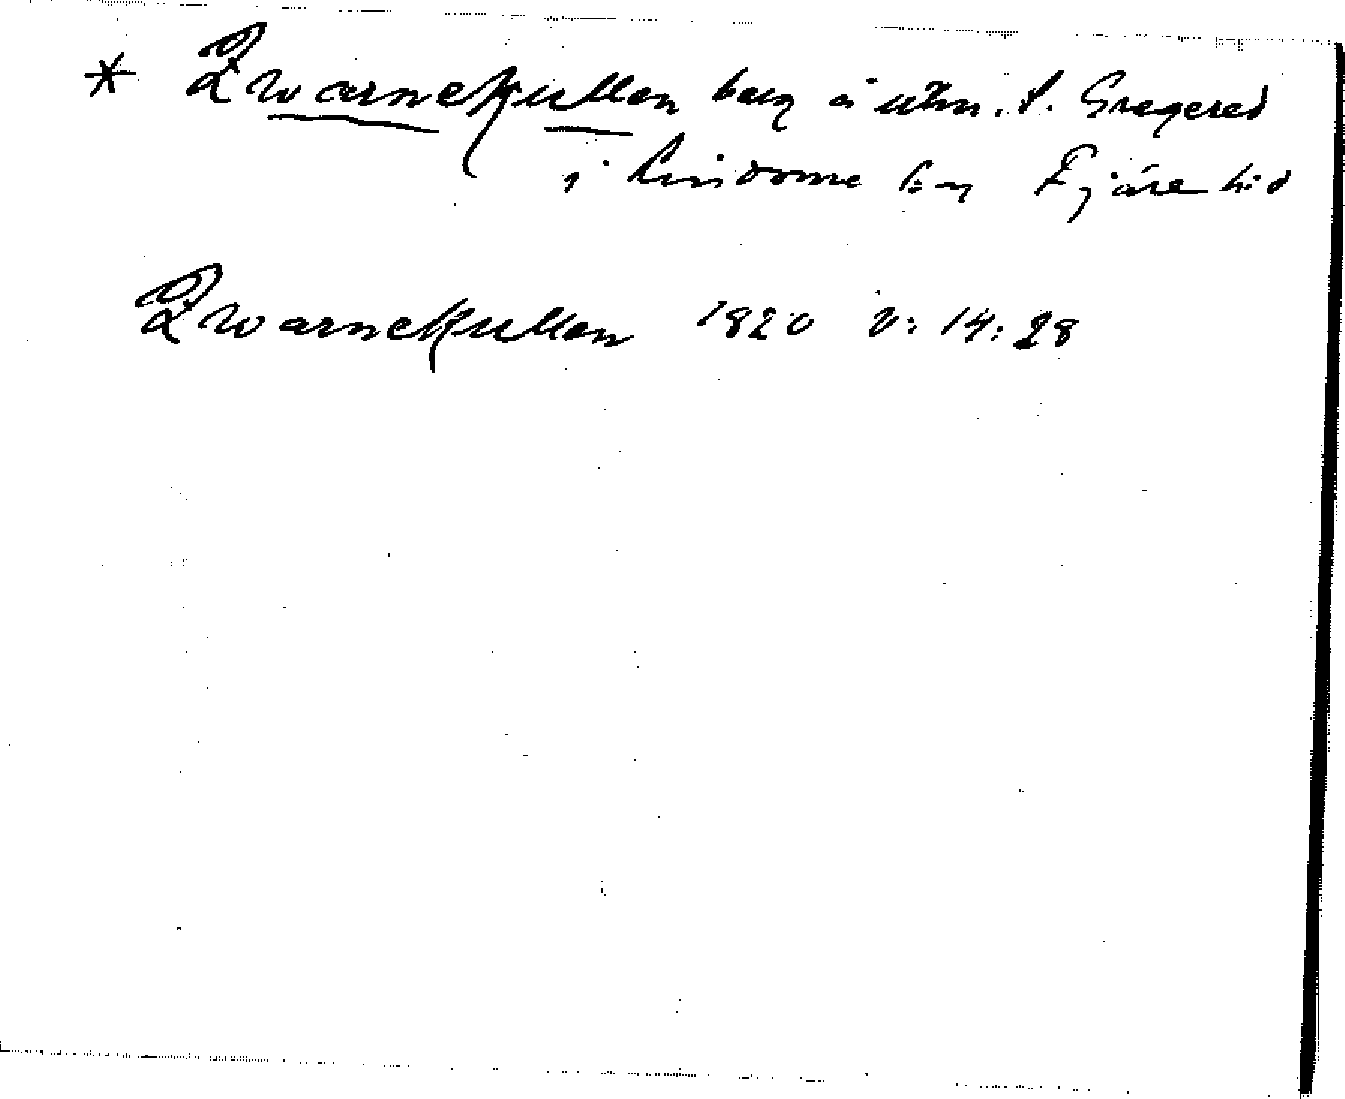 * Qwarnekullen berg å utm. t. Gregered
i Lindome sn Fjäre hd
Qwarnekullen 1820 V: 14: 28